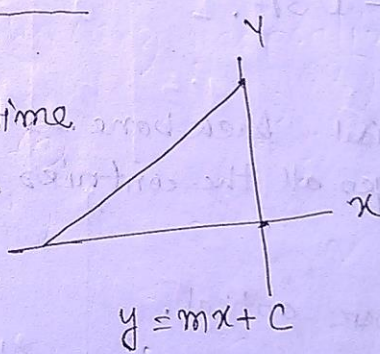 Y
ime
x
y = mx + C